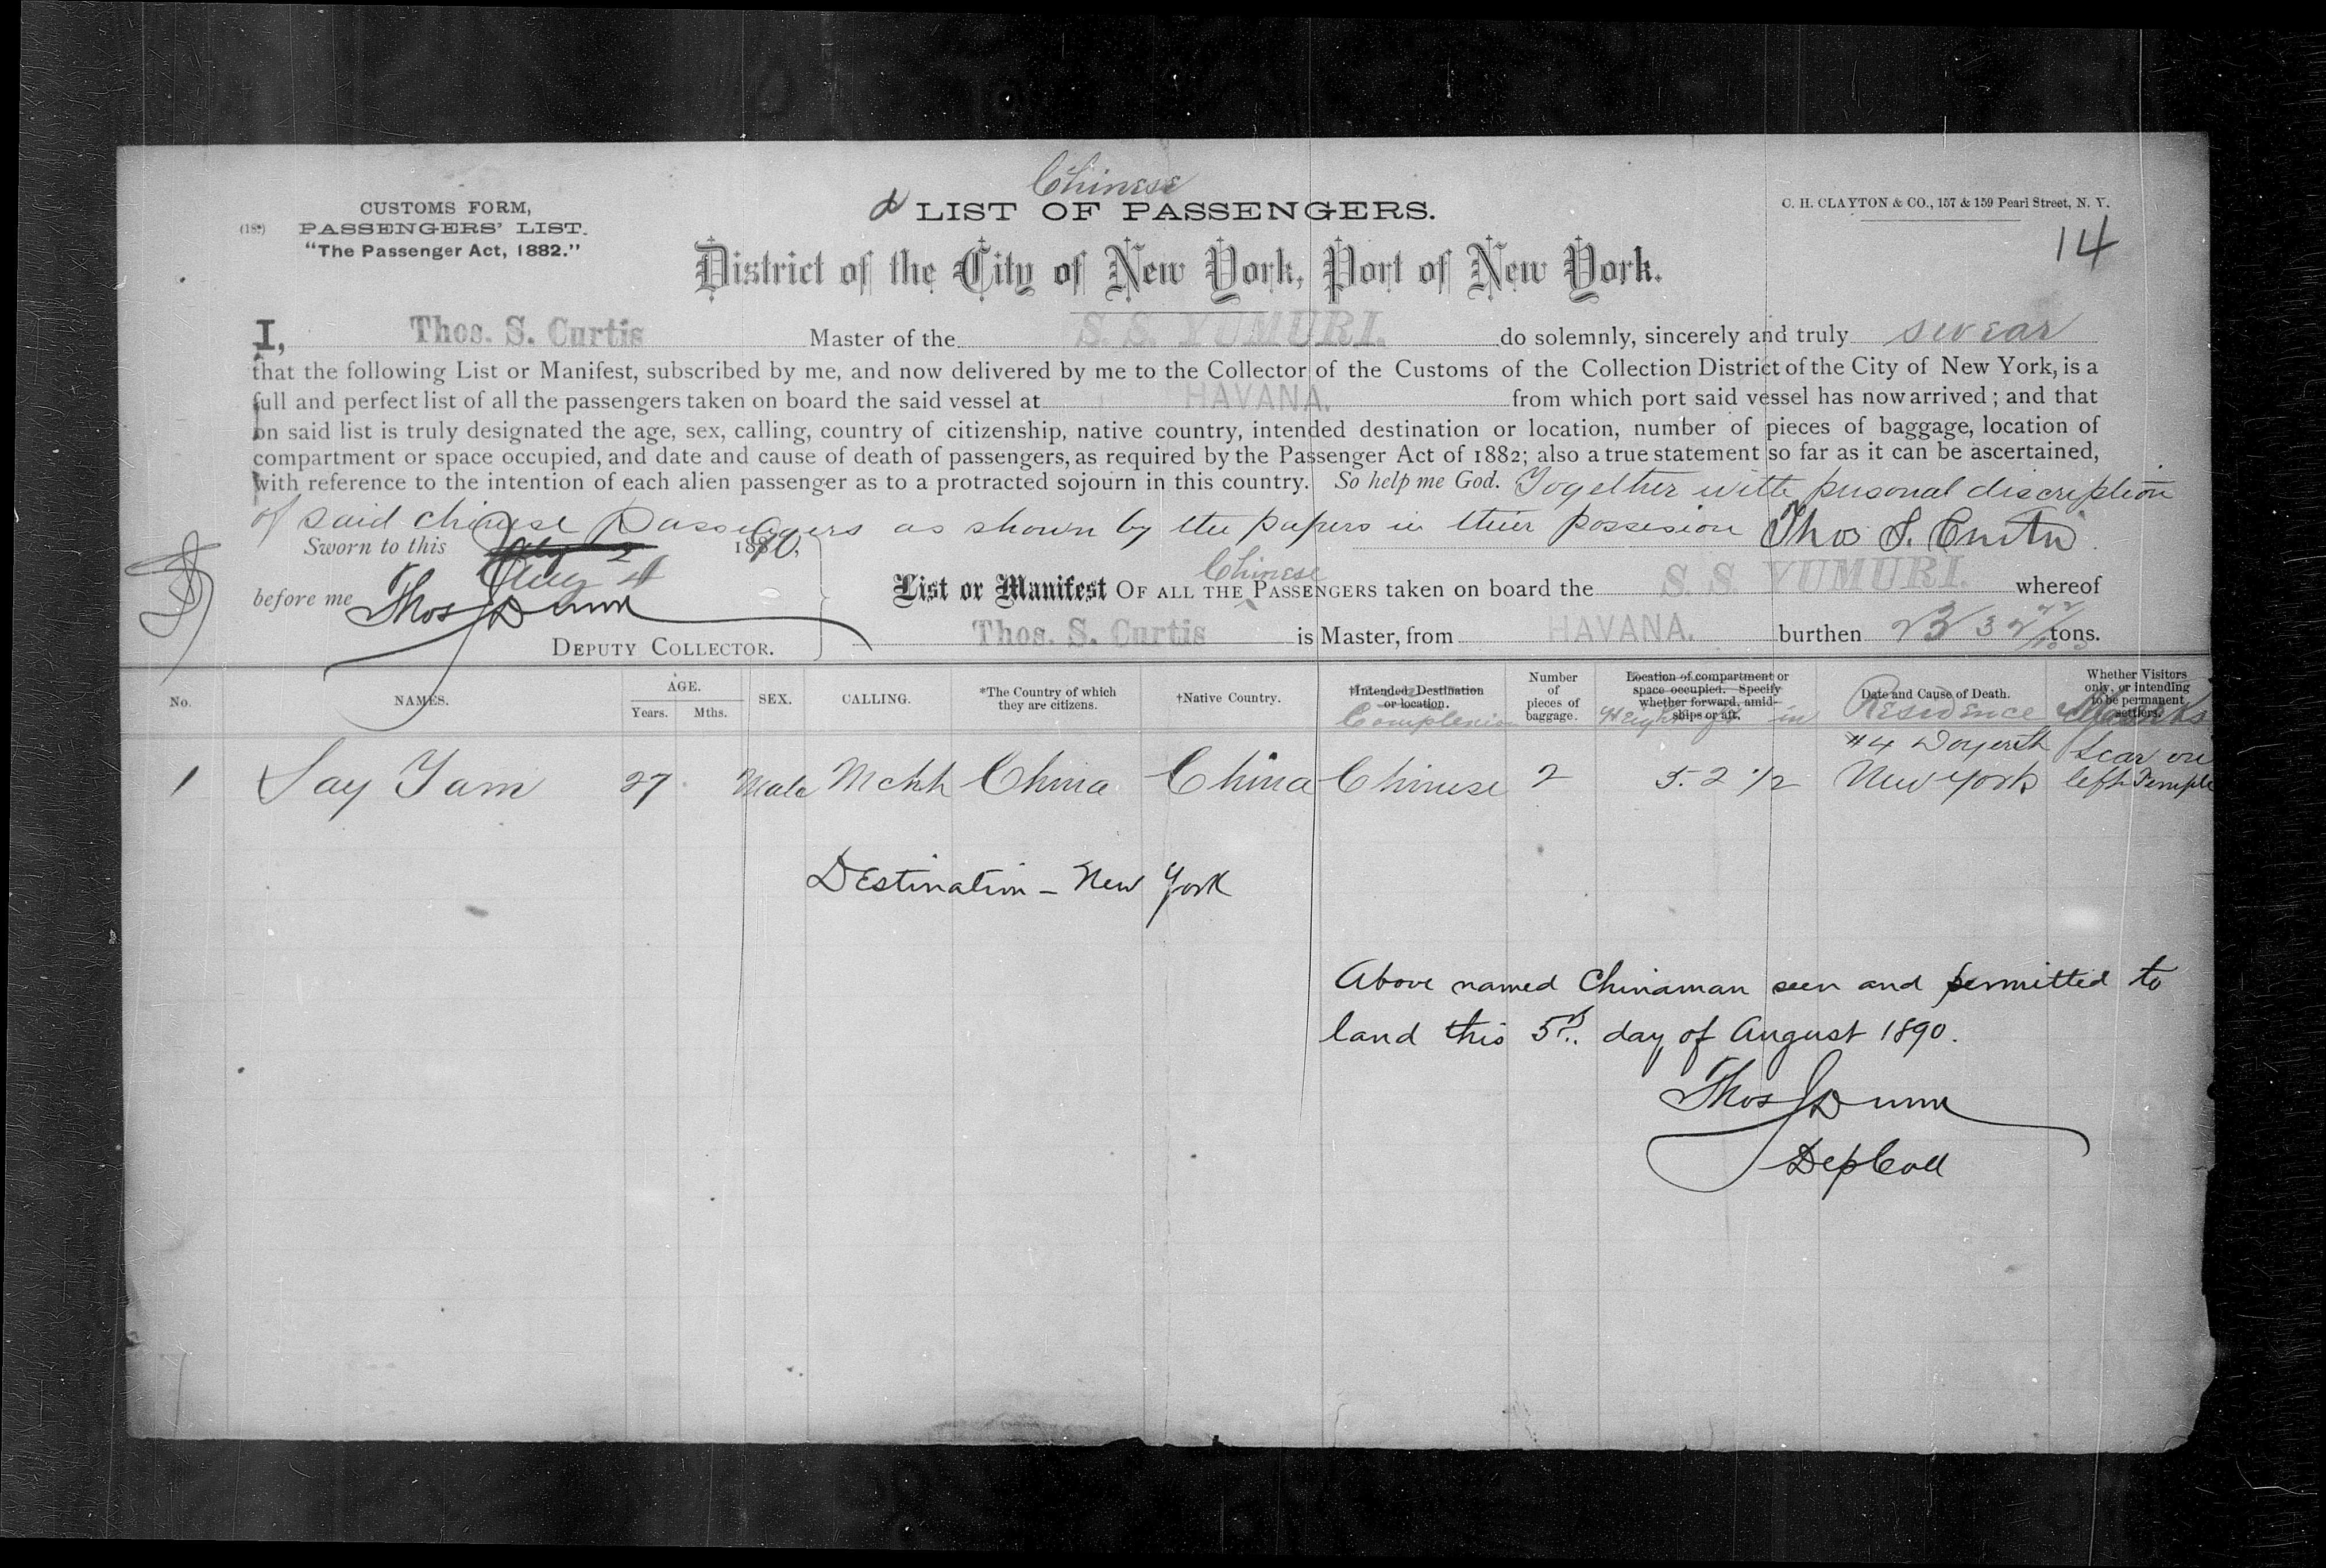 Chinese
CUSTOMS FORM,
PASSENGERS' LIST.
"The Passenger Act, 1882."
LIST OF PASSENGERS.
C. H. CLAYTON & CO., 157 & 159 Pearl Street, N. Y.
14
District of the City of New York, Port of New York.
I, Thos. S. Curtis Master of the S. S. YUMURI. do solemnly, sincerely and truly swear
that the following List or Manifest, subscribed by me, and now delivered by me to the Collector of the Customs of the Collection District of the City of New York, is a
full and perfect list of all the passengers taken on board the said vessel at HAVANA. from which port said vessel has now arrived; and that
on said list is truly designated the age, sex, calling, country of citizenship, native country, intended destination or location, number of pieces of baggage, location of
compartment or space occupied, and date and cause of death of passengers, as required by the Passenger Act of 1882; also a true statement so far as it can be ascertained,
with reference to the intention of each alien passenger as to a protracted sojourn in this country. So help me God. Together with pusonal discription
of said chinese passengers as shown by the papers in their possesion Thos S. Curtis
Sworn to this Aug 4 1890,
before me Thos J Dunn
DEPUTY COLLECTOR.
Chinese
List or Manifest OF ALL THE PASSENGERS taken on board the S. S. YUMURI. whereof
Thos. S. Curtis is Master, from HAVANA. burthen 2332 tons.
No. NAMES. AGE. Years. Mths. SEX. CALLING. *The Country of which they are citizens. †Native Country. †Intended Destination or location. Complexion Number of pieces of baggage. Location of compartment or space occupied. Specify whether forward, amidships or aft. Height in Date and Cause of Death. Residence Whether Visitors only, or intending to be permanent settlers. Marks
#4 Doyer St Scar on
1 Say Yam 27 Male Mcht China China Chinese 2 5. 2 1/2 New York left Temple
Destination – New York
Above named Chinaman seen and permitted to
land this 5th day of August 1890.
Thos J Dunn
Dep Coll